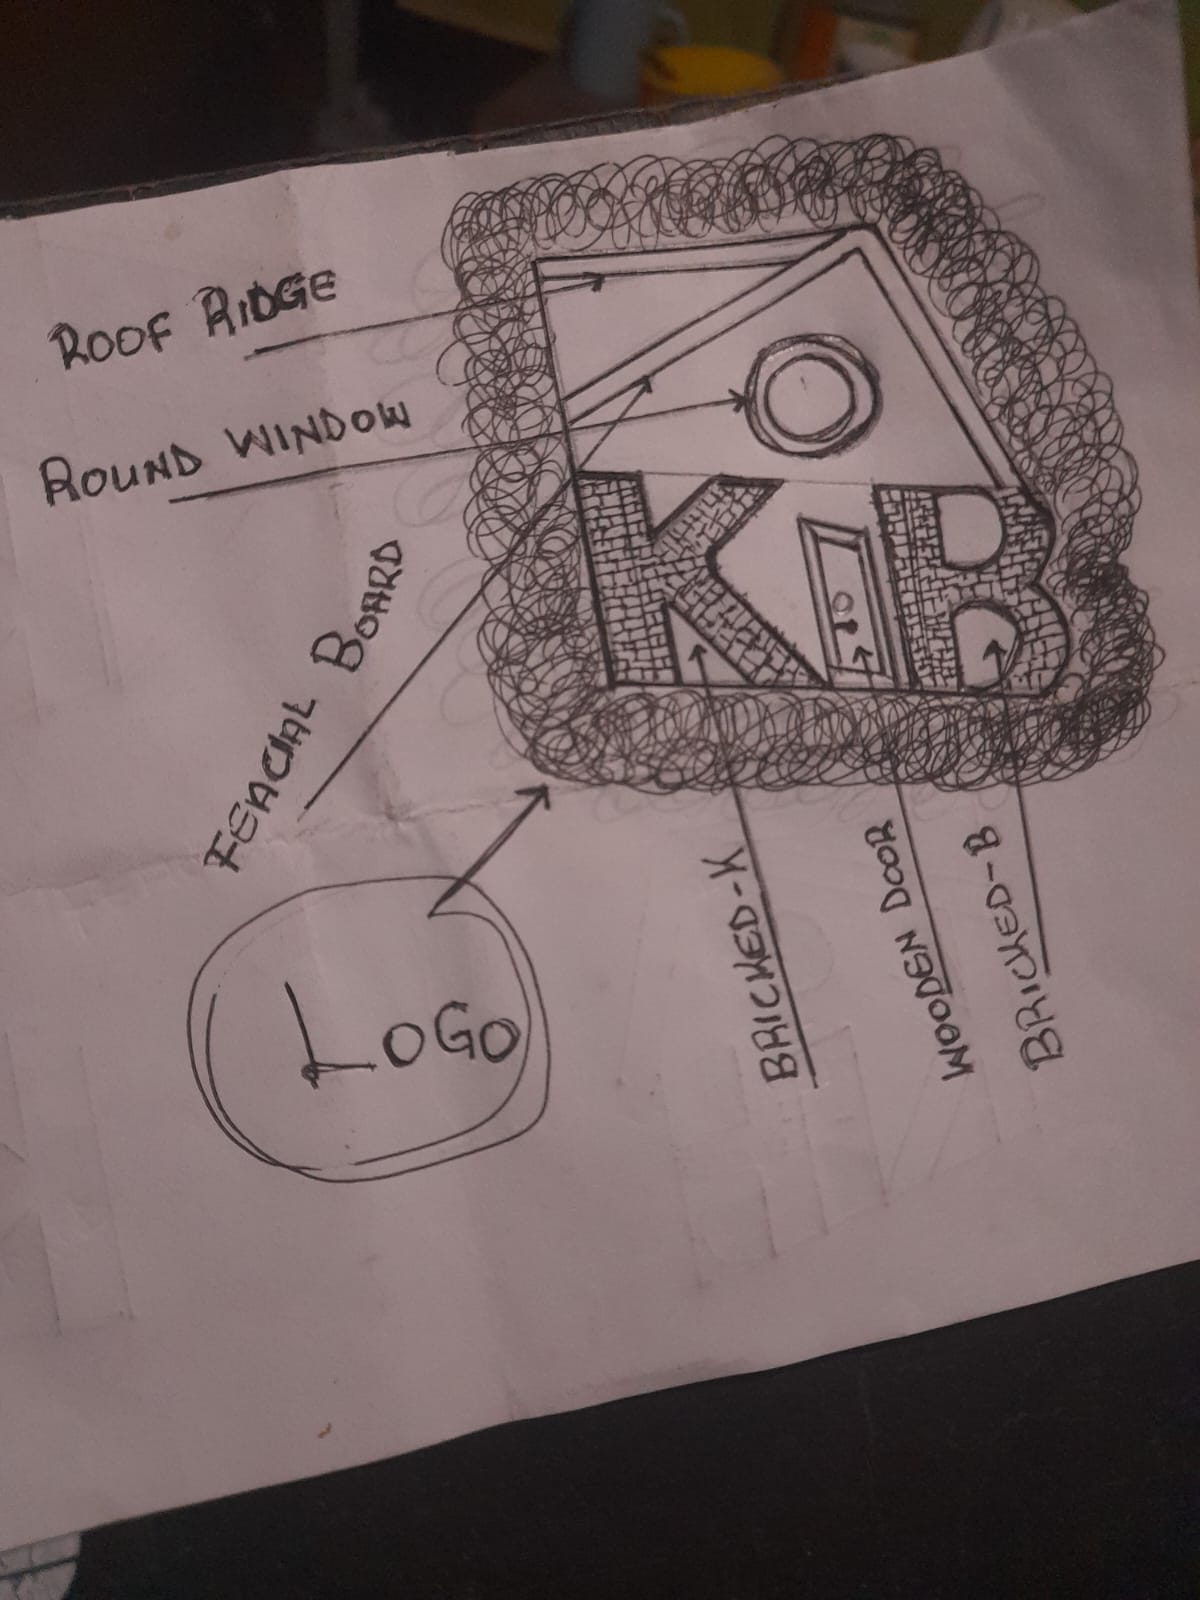 ROOF RIDGE
ROUND WINDOW
FEACIAL BOARD
KB
LOGO
BRICKED-K
WOODEN DOOR
BRICKED-B